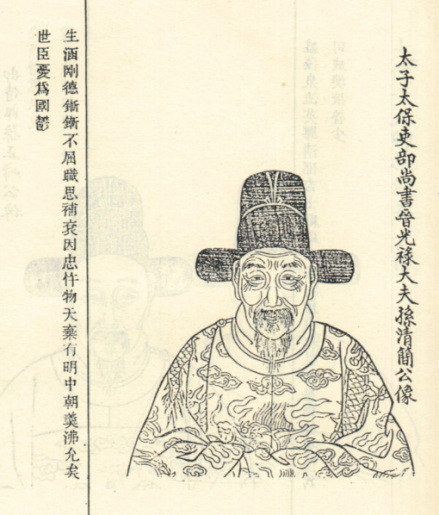 太子太保吏部尚書晉光祿大夫孫清簡公像
生剛德不屈職思補袞因忠忤物天棄有明中朝羹沸允矣
世臣憂爲國鬱